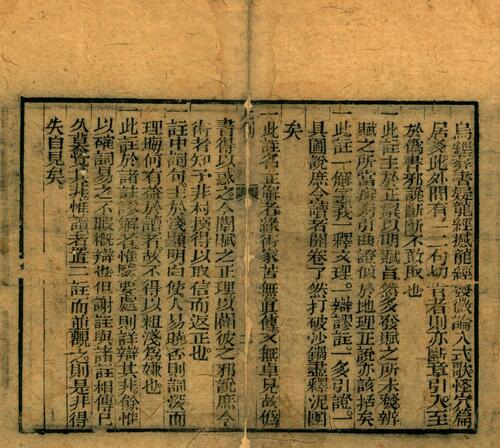 烏經葬書疑龍經撼龍經發微論入式歌怪穴篇
居多此外間有一二句切言者則亦斷章引入至
於僞書邪說斷不敢取也
一此註主於正以明賦旨然多發賦之所未發辨
賦之所當辨旁引曲證似於地理正說亦該括矣
一此註一解字義一釋文理一辯謬註一多引證一
具圖說庶令讀者開卷了然打破沙鍋盡釋泥團
矣
一此註名正解者緣術家苦無真傳又無卓見故僞
書得以惑之今闡賦之正理以闢彼之邪說庶令
術者知予非杜撰得以取信而返正也
一註中詞句主於淺顯明白使人易曉否則詞深而
理晦何有益於讀者故不得以粗淺為嫌也
一此註於諸註謬解者惟緊要處則註辯其非餘惟
以確詞易之不暇概辯也但謝註與諸註相傳已
久莫覺其非惟讀者置二註而並觀之則是非得
失自見矣